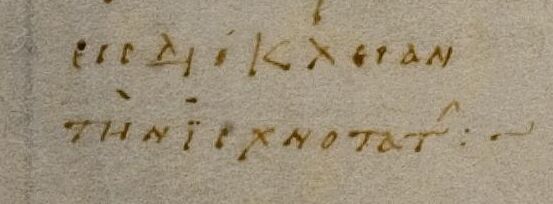 εις Διό κλειαν
τὴν ϊσχνοτατ͂:~